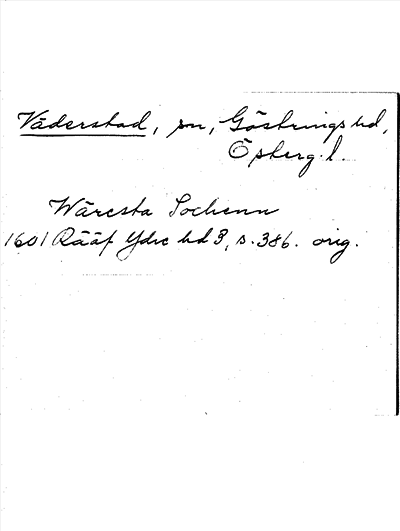 Väderstad, sn, Göstrings hd,
Österg. l.
Wäresta Sochenn
1601 Rääf Ydre hd 3, s. 386. orig.